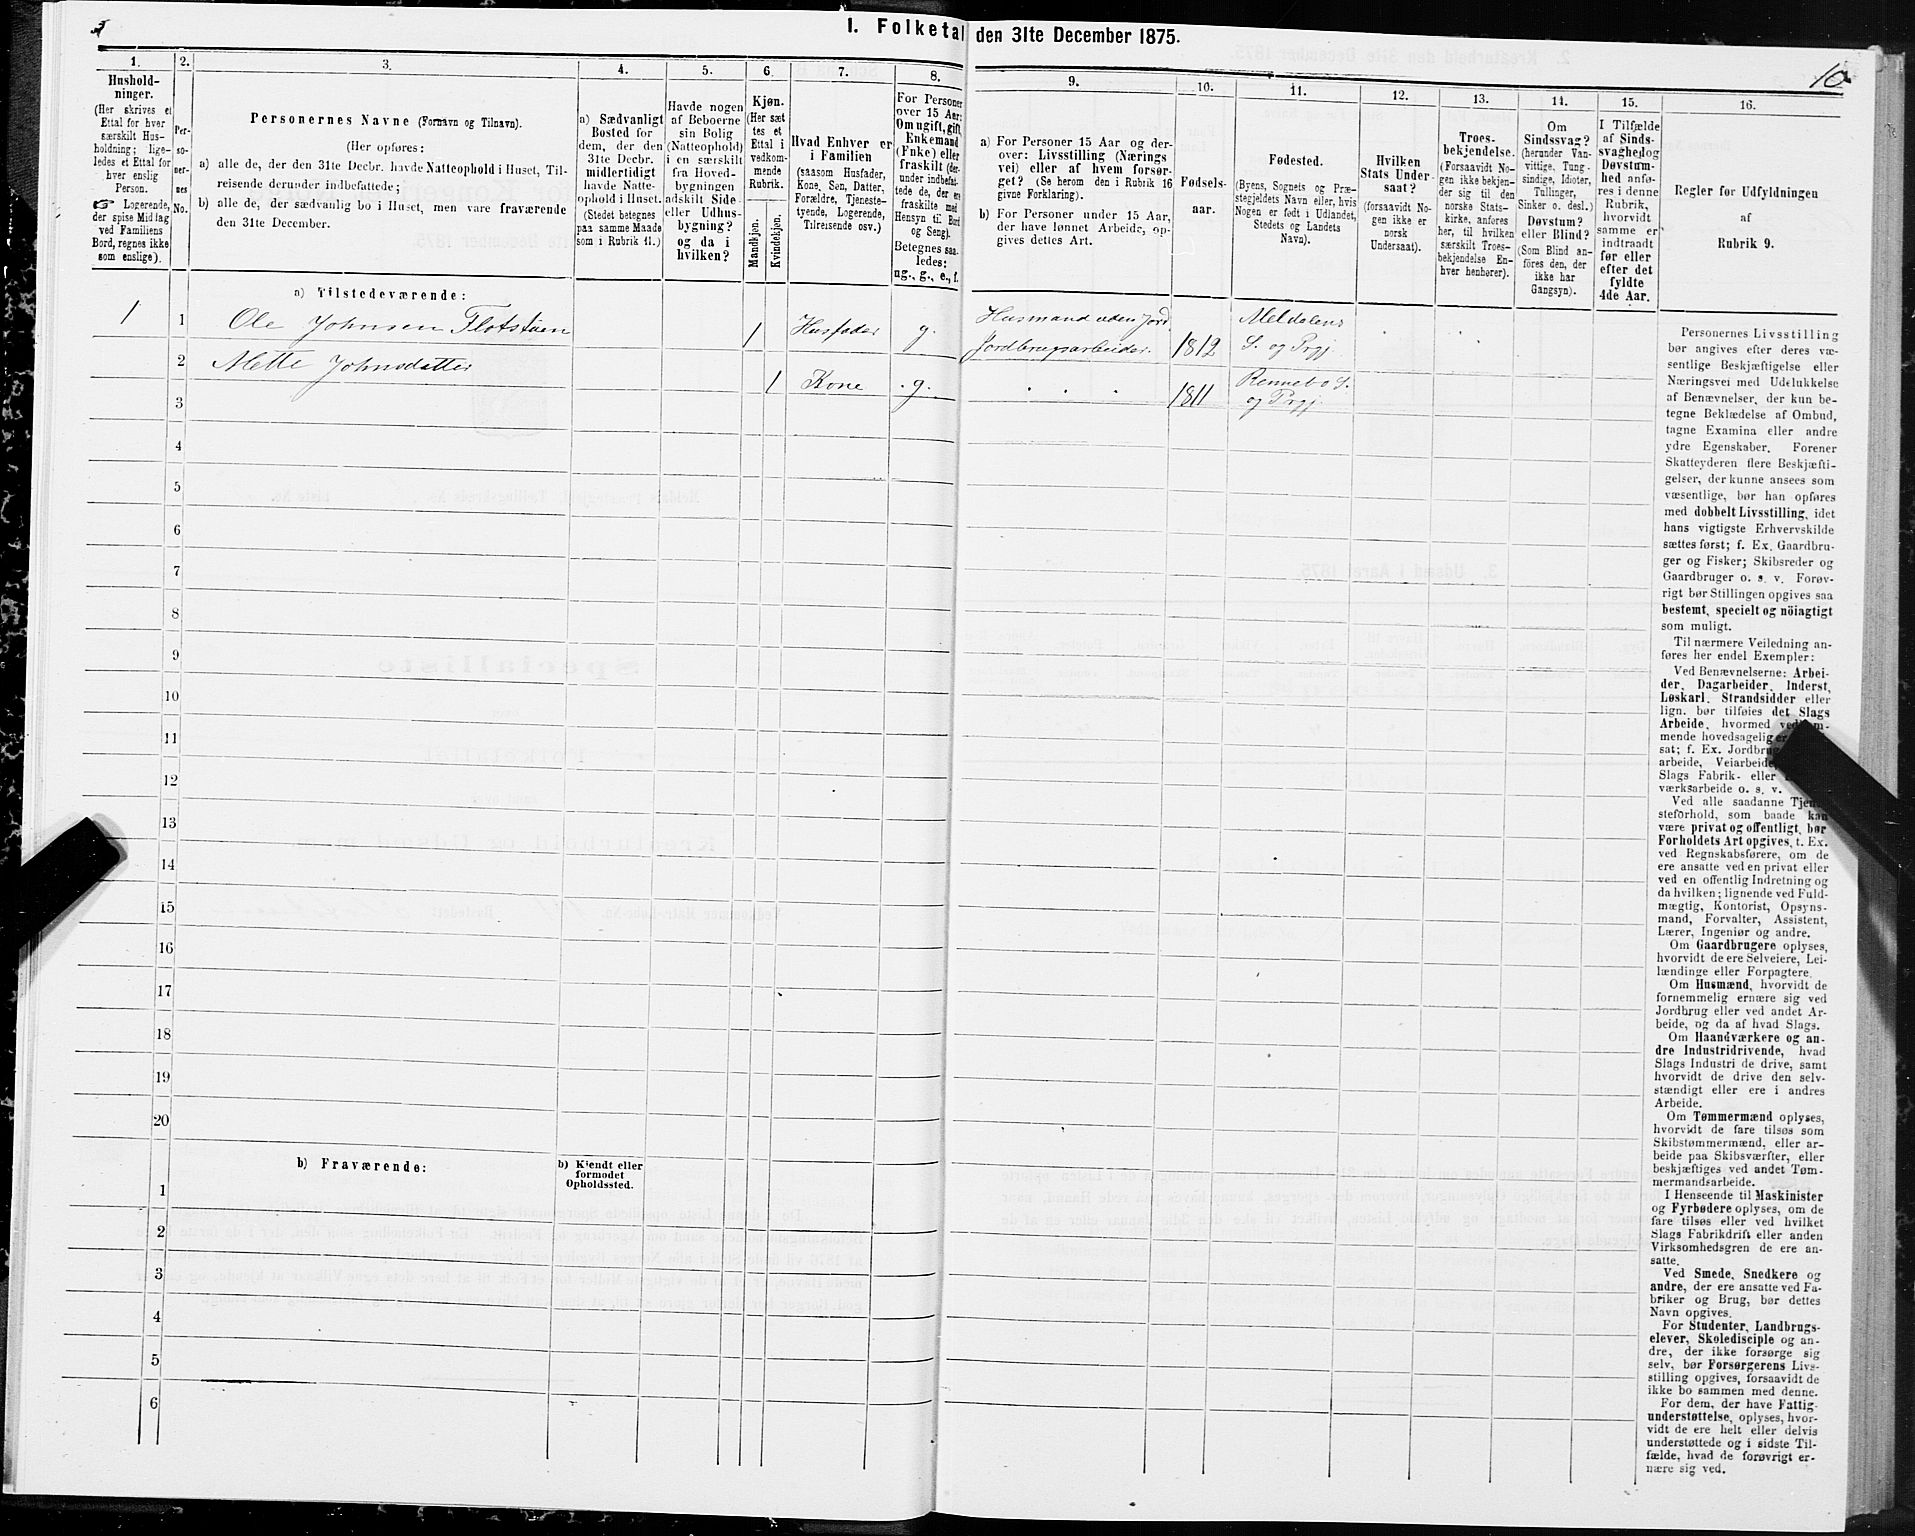 I. Folketal den 31te December 1875.
10
1.
Hushold-
ninger.
(Her skrives et
Ettal for hver
særskilt Hus-
holdning; lige-
ledes et Ettal for
hver enslig
Person.
Logerende,
der spise Middag
ved Familiens
Bord, regnes ikke
som enslige).
2.
Per-
so-
ner-
nes
No.
3.
Personernes Navne (Fornavn og Tilnavn).
(Her opføres:
a) alle de, der den 31te Decbr. havde Natteophold i Huset, Til-
reisende derunder indbefattede;
b) alle de, der sædvanlig bo i Huset, men vare fraværende
den 31te December.
4.
a) Sædvanligt
Bosted for
dem, der den
31te Decbr.
midlertidigt
havde Natte-
ophold i Huset.
(Stedet betegnes
paa samme Maade
som i Rubrik 11.)
5.
Havde nogen
af Beboerne
sin Bolig
(Natteophold)
i en særskilt
fra Hoved-
bygningen
adskilt Side-
eller Udhus-
bygning?
og da i
hvilken?
6.
Kjøn.
(Her sæt
tes et
Ettal i
vedkom-
mende
Rubrik.
Mandkjøn.
Kvindekjøn.
7.
Hvad Enhver er
i Familien
(saasom Husfader,
Kone, Søn, Datter,
Forældre, Tjeneste-
tyende, Logerende,
Tilreisende osv.)
8.
For Personer
over 15 Aar:
Om ugift, gift,
Enkemand
(Enke) eller
fraskilt (der-
under indbefat-
tede de, der ere
fraskilte med
Hensyn til Bord
og Seng).
Betegnes saa-
ledes:
ug., g., e., f.
9.
a) For Personer 15 Aar og der-
over: Livsstilling (Nærings
vei) eller af hvem forsør-
get? (Se herom den i Rubrik 16
givne Forklaring).
b) For Personer under 15 Aar,
der have lønnet Arbeide, op-
gives dettes Art.
10.
Fødsels-
aar.
11.
Fødested.
(Byens, Sognets og Præ-
stegjeldets Navn eller, hvis
Nogen er født i Udlandet,
Stedets og Landets
Navn).
12.
Hvilken
Stats Under-
saat?
(forsaavidt No-
gen ikke er
norsk
Undersaat).
13.
Troes-
bekjendelse.
(Forsaavidt Nogen
ikke bekjen-
der sig til den
norske Stats-
kirke, anføres
her, til hvilken
særskilt Troes-
bekjendelse En-
hver henhører).
14.
Om
Sindssvag?
(herunder Van-
vittige, Tung-
sindige, Idioter,
Tullinger,
Sinker o. desl.)
Døvstum?
eller Blind?
(Som Blind an-
føres den, der
ikke har
Gangsyn).
15.
I Tilfælde
af Sinds-
svaghed og
Døvstum-
hed anfø-
res i denne
Rubrik,
hvorvidt
samme er
indtraadt
før eller
efter det
fyldte
4de Aar.
16.
Regler for Udfyldningen
af
Rubrik 9.
a) Tilstedeværende:
1 1 Ole Johnsen Flotstuen 1 Husfader g. Husmand uden Jord
Jordbrugsarbeider. 1812 Meldalens
S. og Prgj.
2 Mette Johnsdatter 1 Kone g. 1811 Rennebo S.
og Prgj.
3
4
5
6
7
8
9
10
11
12
13
14
15
16
17
18
19
20
b) Fraværende:
b) Kjendt eller
formodet
Opholdssted.
1
2
3
4
5
6
Personernes Livsstilling
bør angives efter deres væ-
sentlige Beskjæftigelse eller
Næringsvei med Udelukkelse
af Benævnelser, der kun be-
tegne Beklædelse af Ombud,
tagne Examina eller andre
ydre Egenskaber. Forener
Skatteyderen flere Beskjæfti-
gelser, der kunne ansees som
væsentlige, bør han opføres
med dobbelt Livsstilling, idet
hans vigtigste Erhvervskilde
sættes først; f. Ex. Gaardbru-
ger og Fisker; Skibsreder og
Gaardbruger o. s. v. Forøv-
rigt bør Stillingen opgives saa
bestemt, specielt og nöiagtigt
som muligt.
Til nærmere Veiledning an-
føres her endel Exempler:
Ved Benævnelserne: Arbei-
der, Dagarbeider, Inderst,
Løskarl, Strandsidder eller
lign. bør tilføies det Slags
Arbeide, hvormed
mende hovedsagelig er
sat; f. Ex. Jordbrug
arbeide, Veiarbeide,
Slags Fabrik- eller
værksarbeide o. s. v.
Ved alle saadanne
steforhold, som baade kan
være privat og offentligt, bør
Forholdets Art opgives, t. Ex.
ved Regnskabsførere, om de
ere ansatte ved en privat eller
ved en offentlig Indretning og
da hvilken; lignende ved Fuld-
mægtig, Kontorist, Opsyns-
mand, Forvalter, Assistent,
Lærer, Ingeniør og andre.
Om Gaardbrugere oplyses,
hvorvidt de ere Selveiere, Lei-
lændinge eller Forpagtere.
Om Husmænd, hvorvidt de
fornemmelig ernære sig ved
Jordbrug eller ved andet Ar-
beide, og da af hvad Slags.
Om Haandværkere og an-
dre Industridrivende, hvad
Slags Industri de drive, samt
hvorvidt de drive den selv-
stændigt eller ere i andres
Arbeide.
Om Tømmermænd oplyses,
hvorvidt de fare tilsøs som
Skibstømmermænd, eller ar-
beide paa Skibsværfter, eller
beskjæftiges ved andet Tøm-
mermandsarbeide.
I Henseende til Maskinister
og Fyrbødere oplyses, om de
fare tilsøs eller ved hvilket
Slags Fabrikdrift eller anden
Virksomhedsgren de ere an-
satte.
Ved Smede, Snedkere og
andre, der ere ansatte ved Fa-
briker og Brug, bør dettes
Navn opgives.
For Studenter, Landbrugs-
elever, Skoledisciple og an-
dre, der ikke forsørge sig
selv, bør Forsørgerens Livs-
stilling opgives, forsaavidt de
ikke bo sammen med denne.
For dem, der have Fattig-
understøttelse, oplyses, hvor-
vidt de ere helt eller delvis
understøttede og i sidste Til-
fælde, hvad de forøvrigt er-
nære sig ved.